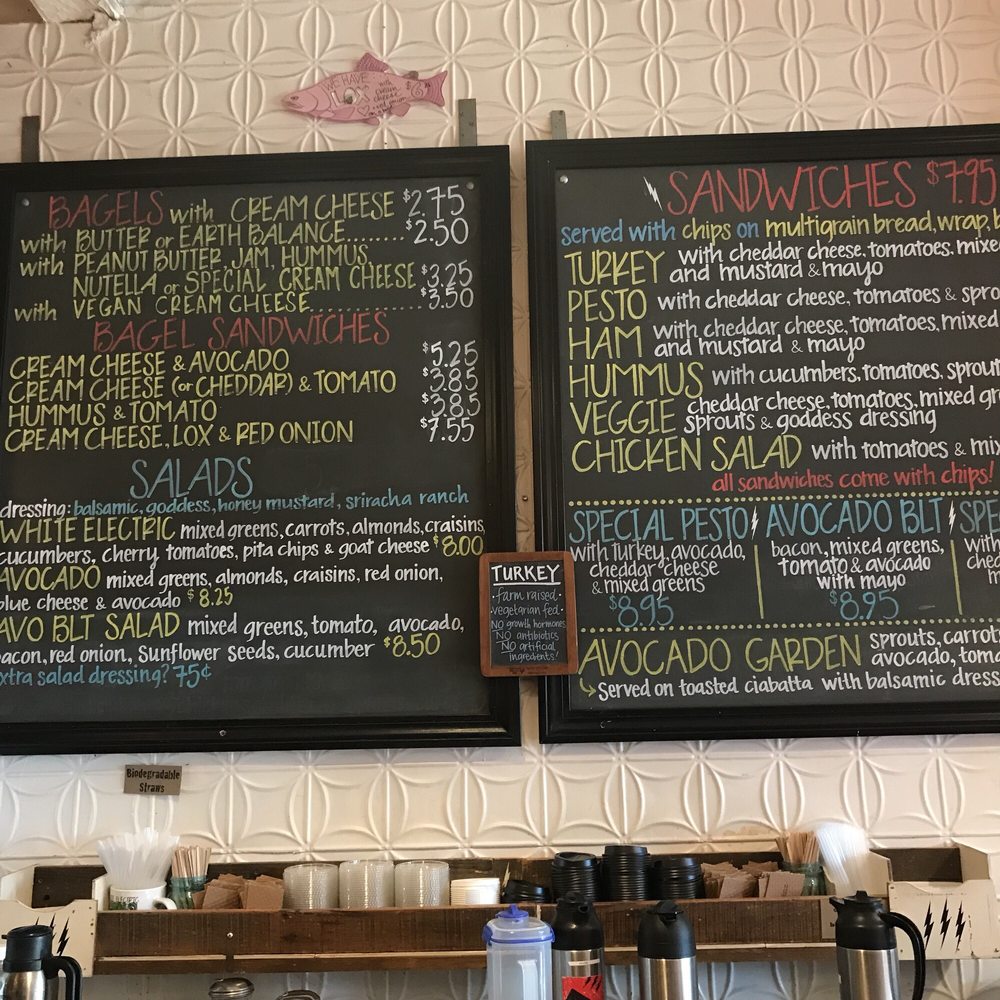 WE HAVE
LOX
with
cream
cheese
BAGELS with CREAM CHEESE $2.75
with BUTTER or EARTH BALANCE........ $2.50
with PEANUT BUTTER, JAM, HUMMUS,
NUTELLA or SPECIAL CREAM CHEESE $3.25
with VEGAN CREAM CHEESE............ $3.50
BAGEL SANDWICHES
CREAM CHEESE & AVOCADO $5.25
CREAM CHEESE (or CHEDDAR) & TOMATO $3.85
HUMMUS & TOMATO $3.85
CREAM CHEESE, LOX & RED ONION $7.55
SALADS
dressing: balsamic, goddess, honey mustard, sriracha ranch
WHITE ELECTRIC mixed greens, carrots, almonds, craisins,
cucumbers, cherry tomatoes, pita chips & goat cheese $8.00
AVOCADO mixed greens, almonds, craisins, red onion,
blue cheese & avocado $8.25
AVO BLT SALAD mixed greens, tomato, avocado,
bacon, red onion, sunflower seeds, cucumber $8.50
extra salad dressing? 75¢
TURKEY
•farm raised•
•vegetarian fed•
NO growth hormones
NO antibiotics
NO artificial
ingredients!
SANDWICHES $7.95
served with chips on multigrain bread, wrap,
TURKEY with cheddar cheese, tomatoes, mixed
and mustard & mayo
PESTO with cheddar cheese, tomatoes & spro
HAM with cheddar cheese, tomatoes, mixed
and mustard & mayo
HUMMUS with cucumbers, tomatoes, sprout
VEGGIE cheddar cheese, tomatoes, mixed gre
sprouts & goddess dressing
CHICKEN SALAD with tomatoes & mix
all sandwiches come with chips!
SPECIAL PESTO
with turkey, avocado,
cheddar cheese
& mixed greens
$8.95
AVOCADO BLT
bacon, mixed greens,
tomato & avocado
with mayo
$8.95
SPE
with
ched
AVOCADO GARDEN sprouts, carrots
avocado, toma
Served on toasted ciabatta with balsamic dress
Biodegradable
Straws